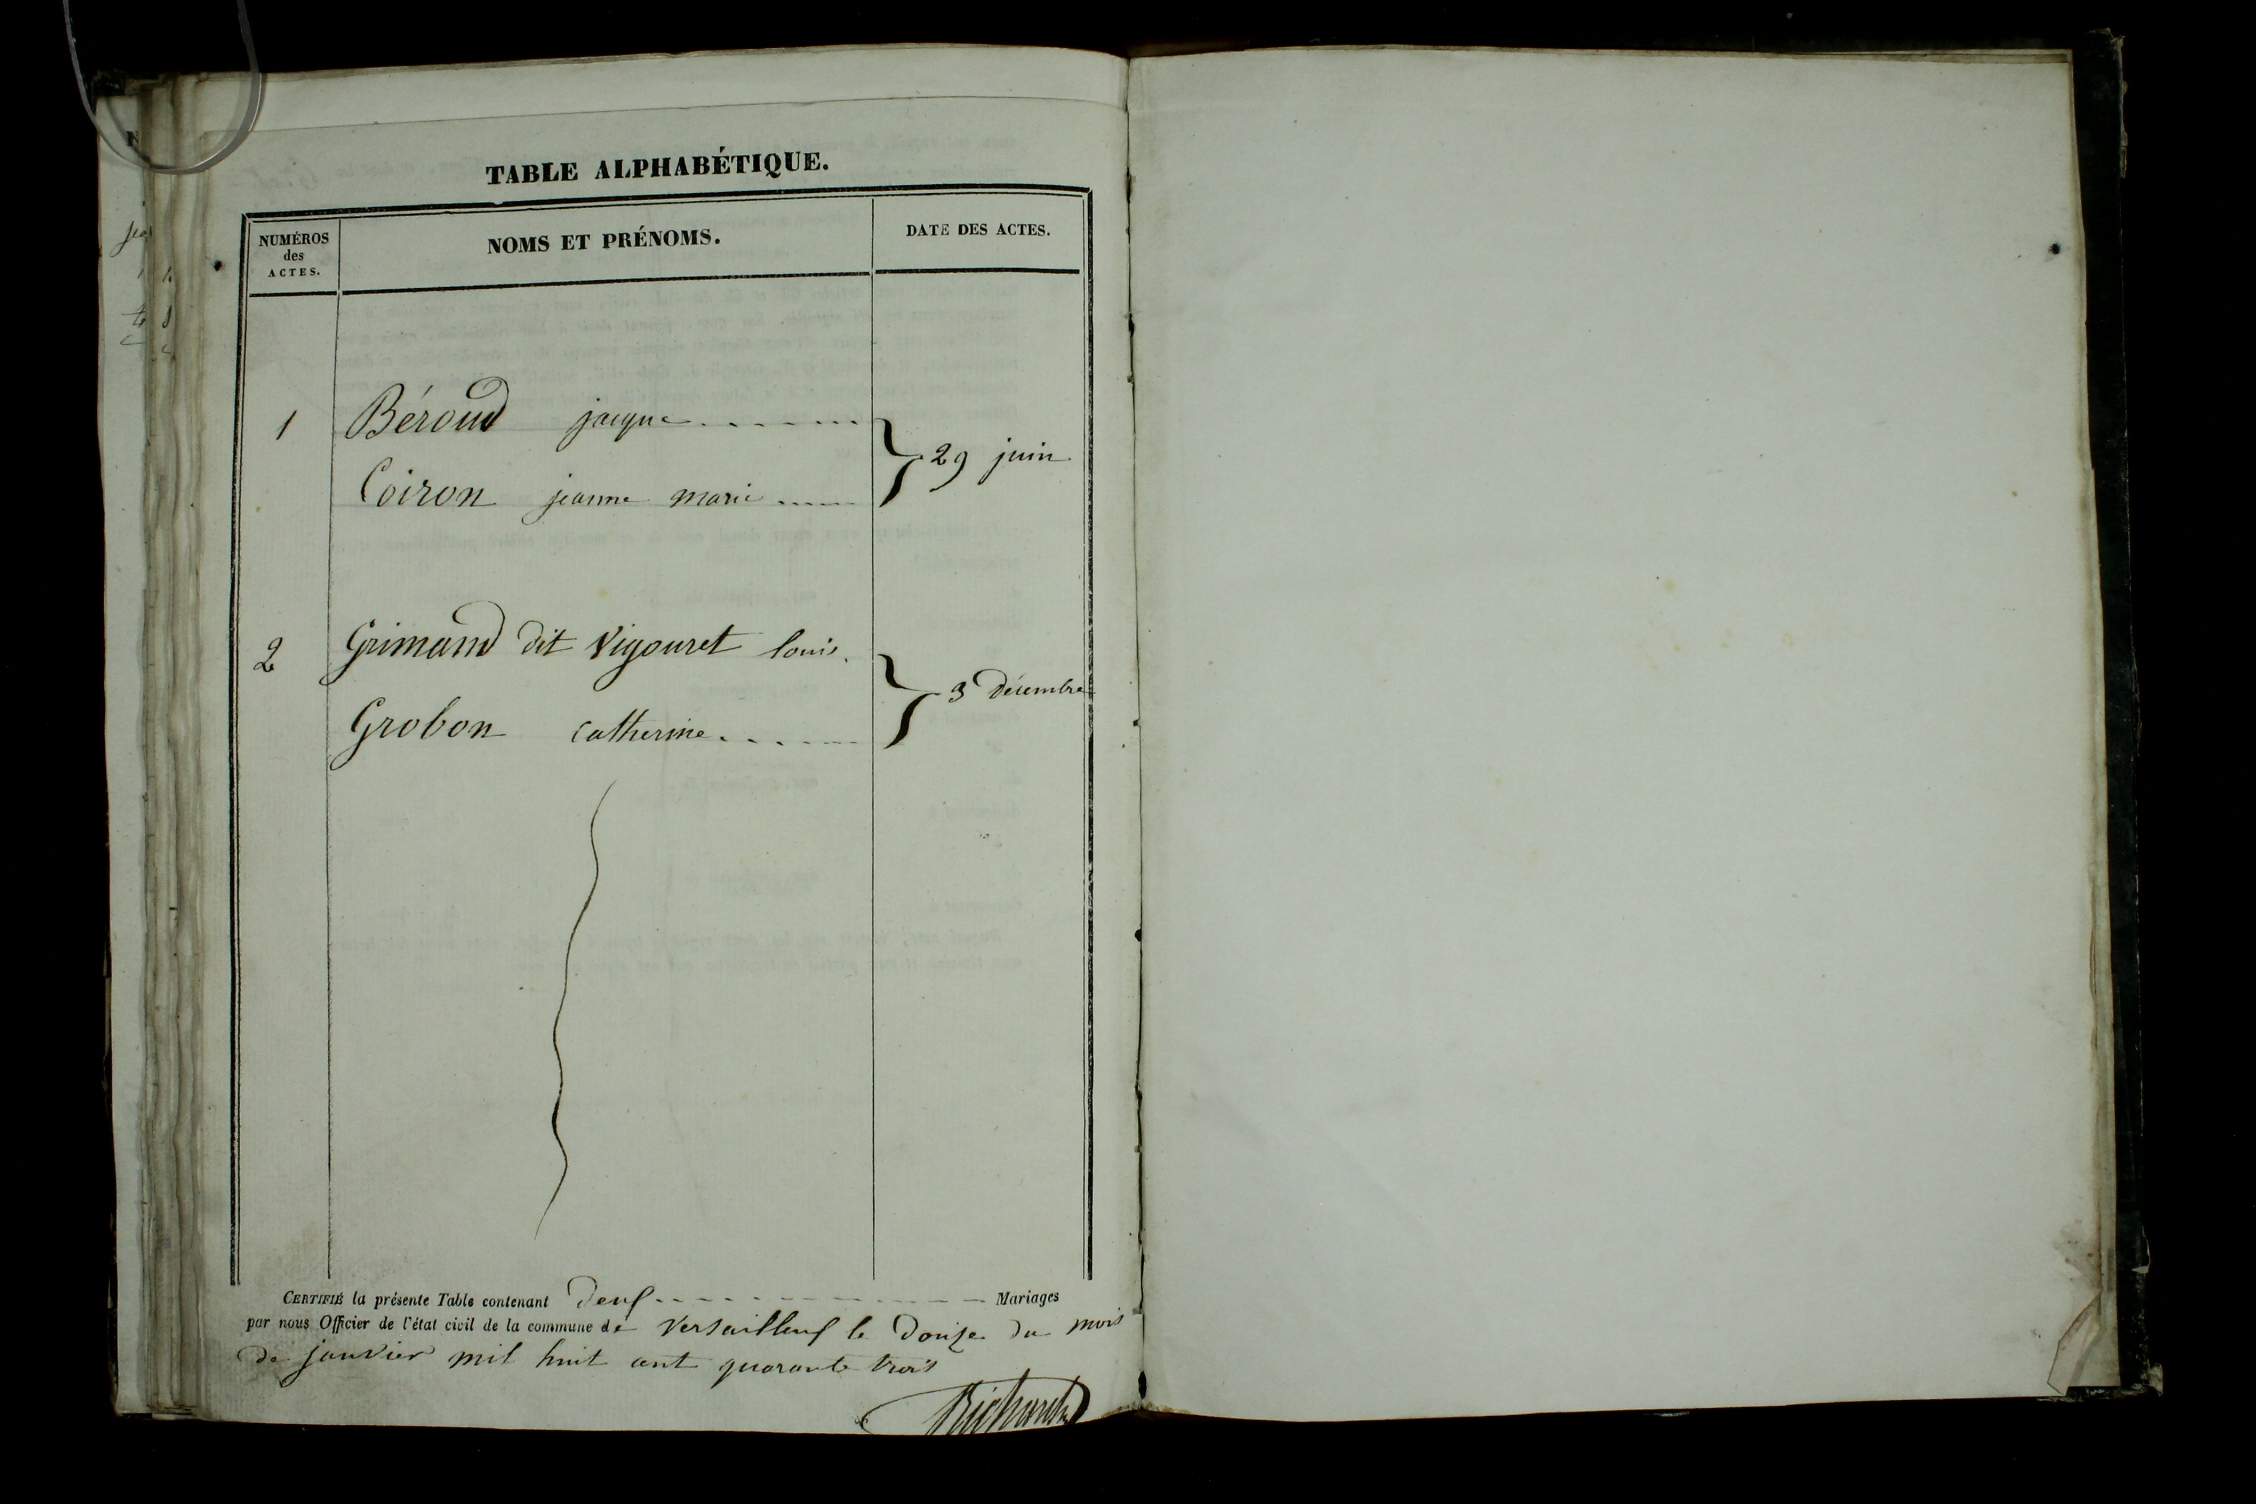 TABLE ALPHABÉTIQUE.
NUMÉROS des ACTES. NOMS ET PRÉNOMS. DATE DES ACTES.
1 Béroud jacque
Coiron jeanne marie
} 29 juin
2 Grimaud dit Vigouret louis.
Grobon catherine
} 3 décembre
CERTIFIÉ la présente Table contenant deux Mariages
par nous Officier de l'état civil de la commune de Versailleux le douze du mois
de janvier mil huit cent quarante trois